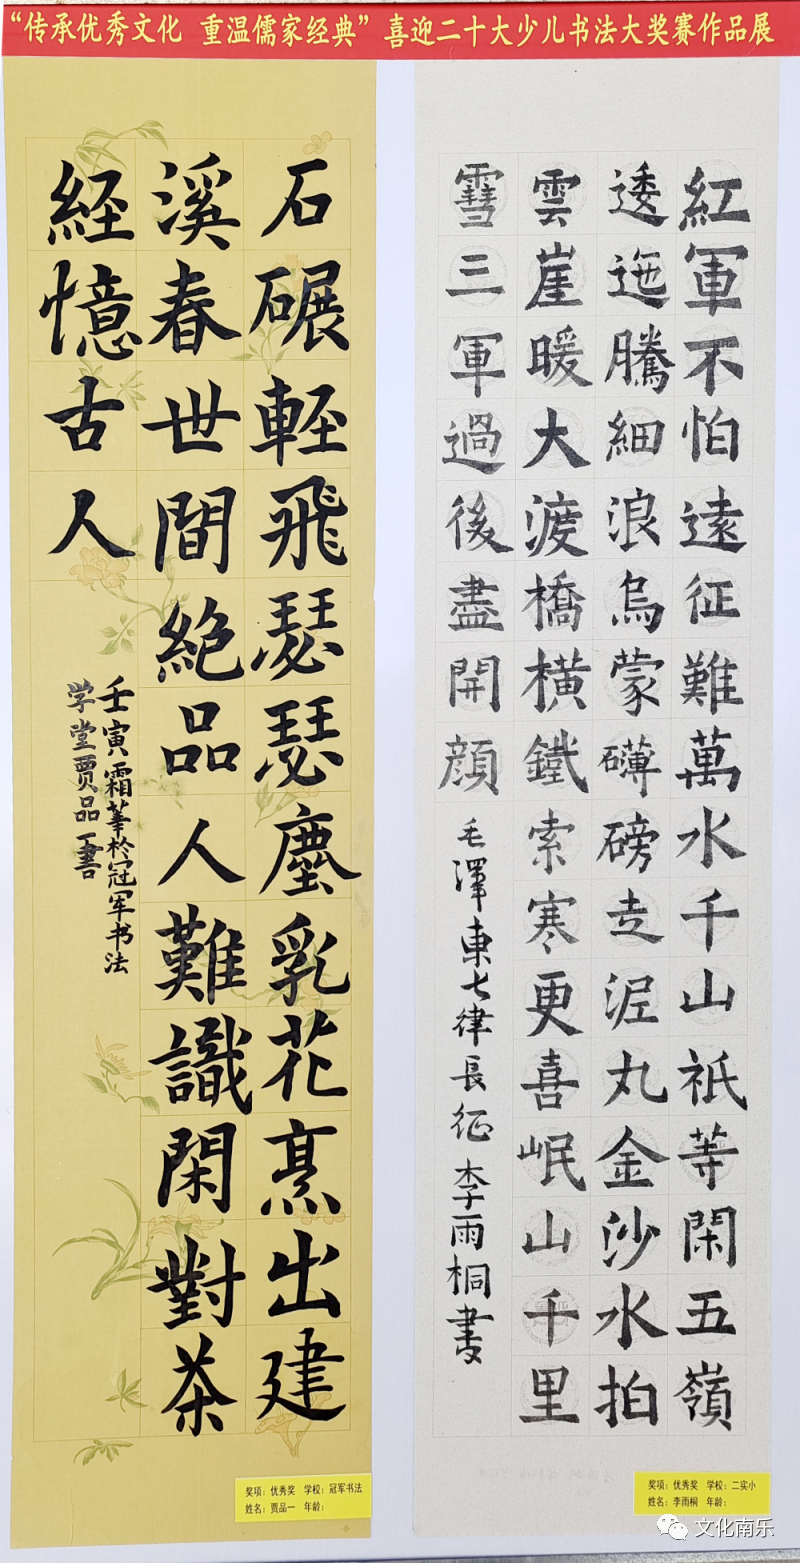 “传承优秀文化 重温儒家经典”喜迎二十大少儿书法大奖赛作品展
石碾軽飛瑟瑟塵乳花烹出建
溪春世間絶品人難識閑對茶
経憶古人
壬寅霜華於冠军书法
学堂贾品一書
奖项：优秀奖 学校：冠军书法
姓名：贾品一 年龄：
紅軍不怕遠征難萬水千山祇等閑五嶺
逶迤騰細浪烏蒙礴磅走泥丸金沙水拍
雲崖暖大渡橋橫鐵索寒更喜岷山千里
雪三軍過後盡開顔
毛澤東七律長征 李雨桐書
奖项：优秀奖 学校：二实小
姓名：李雨桐 年龄：
文化南乐